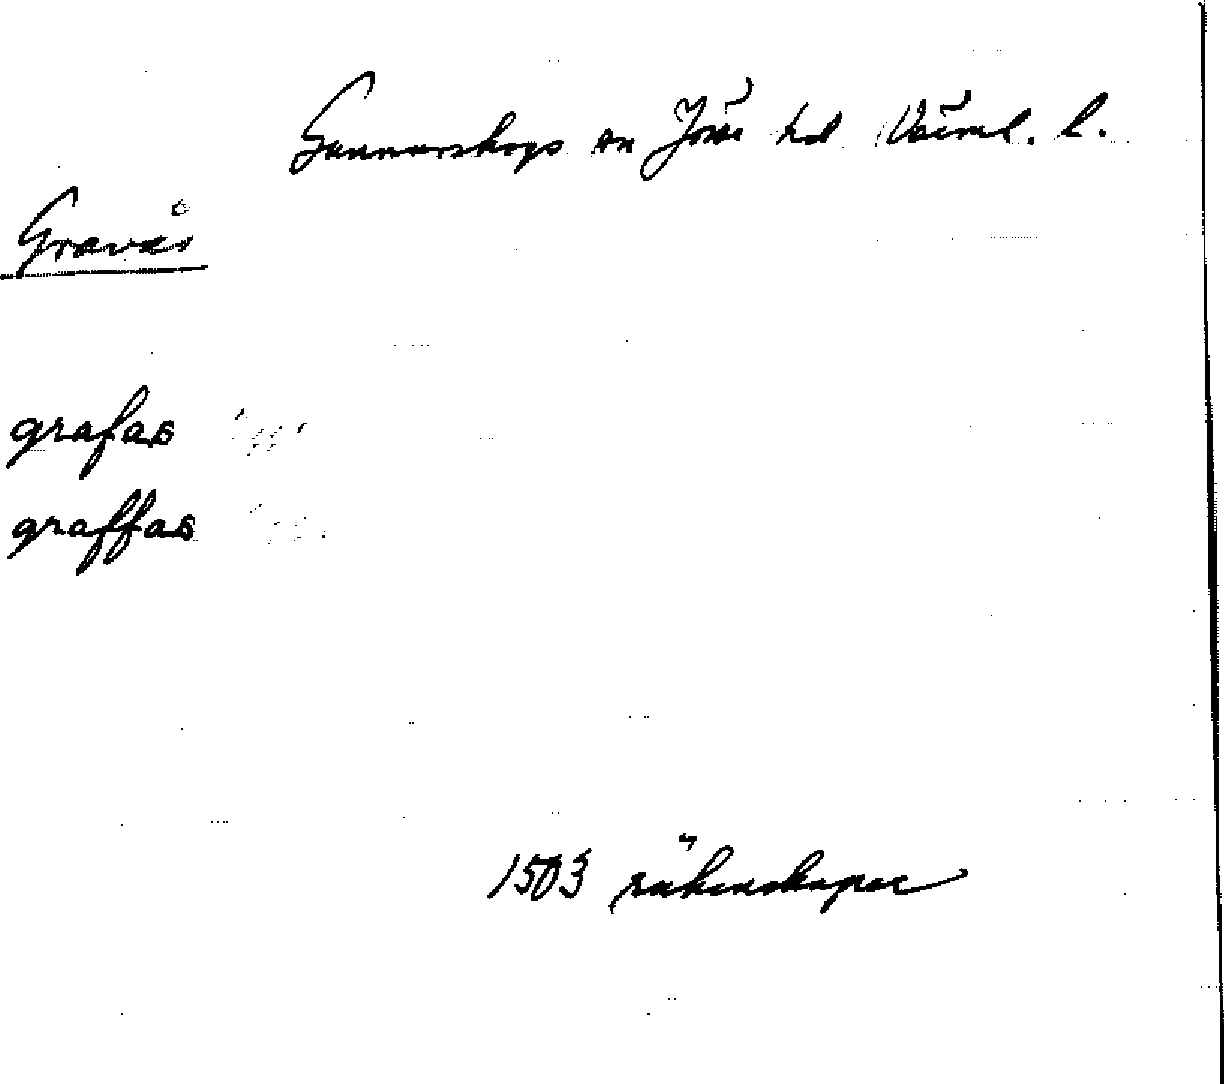 Gunnarskogs sn Jösse hd Värml. l.
Gravås
grafas
graffas
1503 räkenskaper